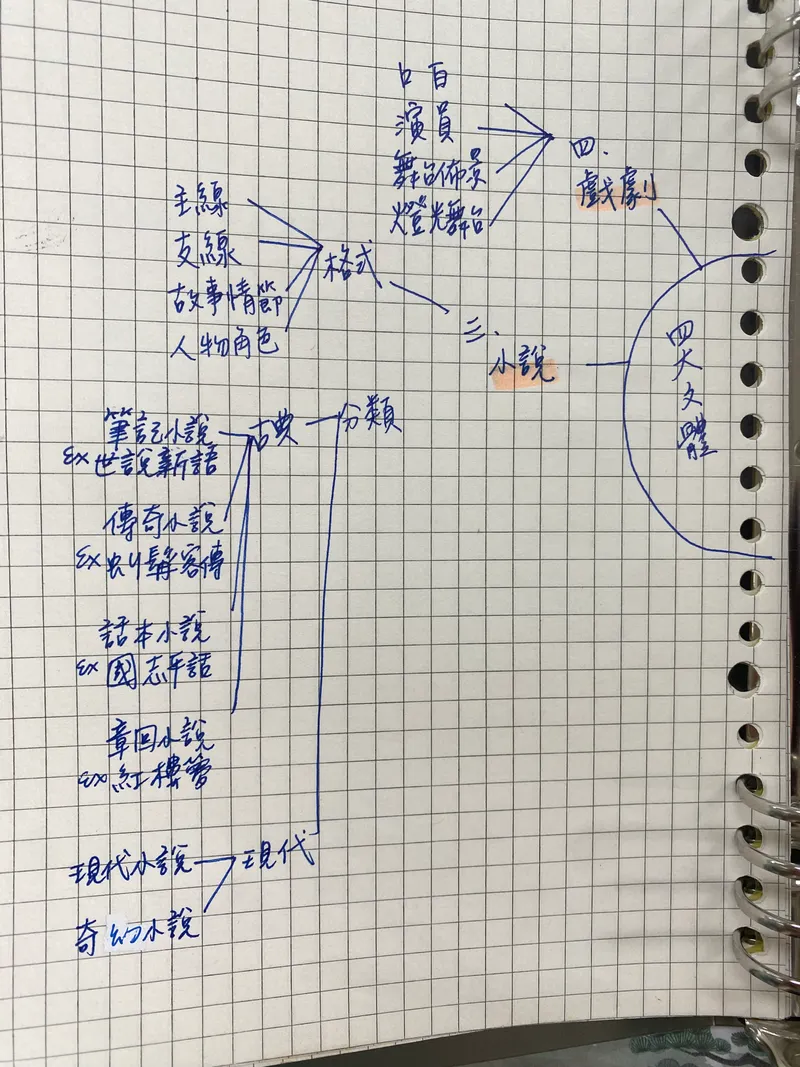 四大文體
四.
戲劇
口白
演員
舞台佈景
燈光舞台
三.
小說
格式
主線
支線
故事情節
人物角色
分類
古典
筆記小說
ex 世說新語
傳奇小說
ex 虬髯客傳
話本小說
ex 國志平話
章回小說
ex 紅樓夢
現代
現代小說
奇幻小說